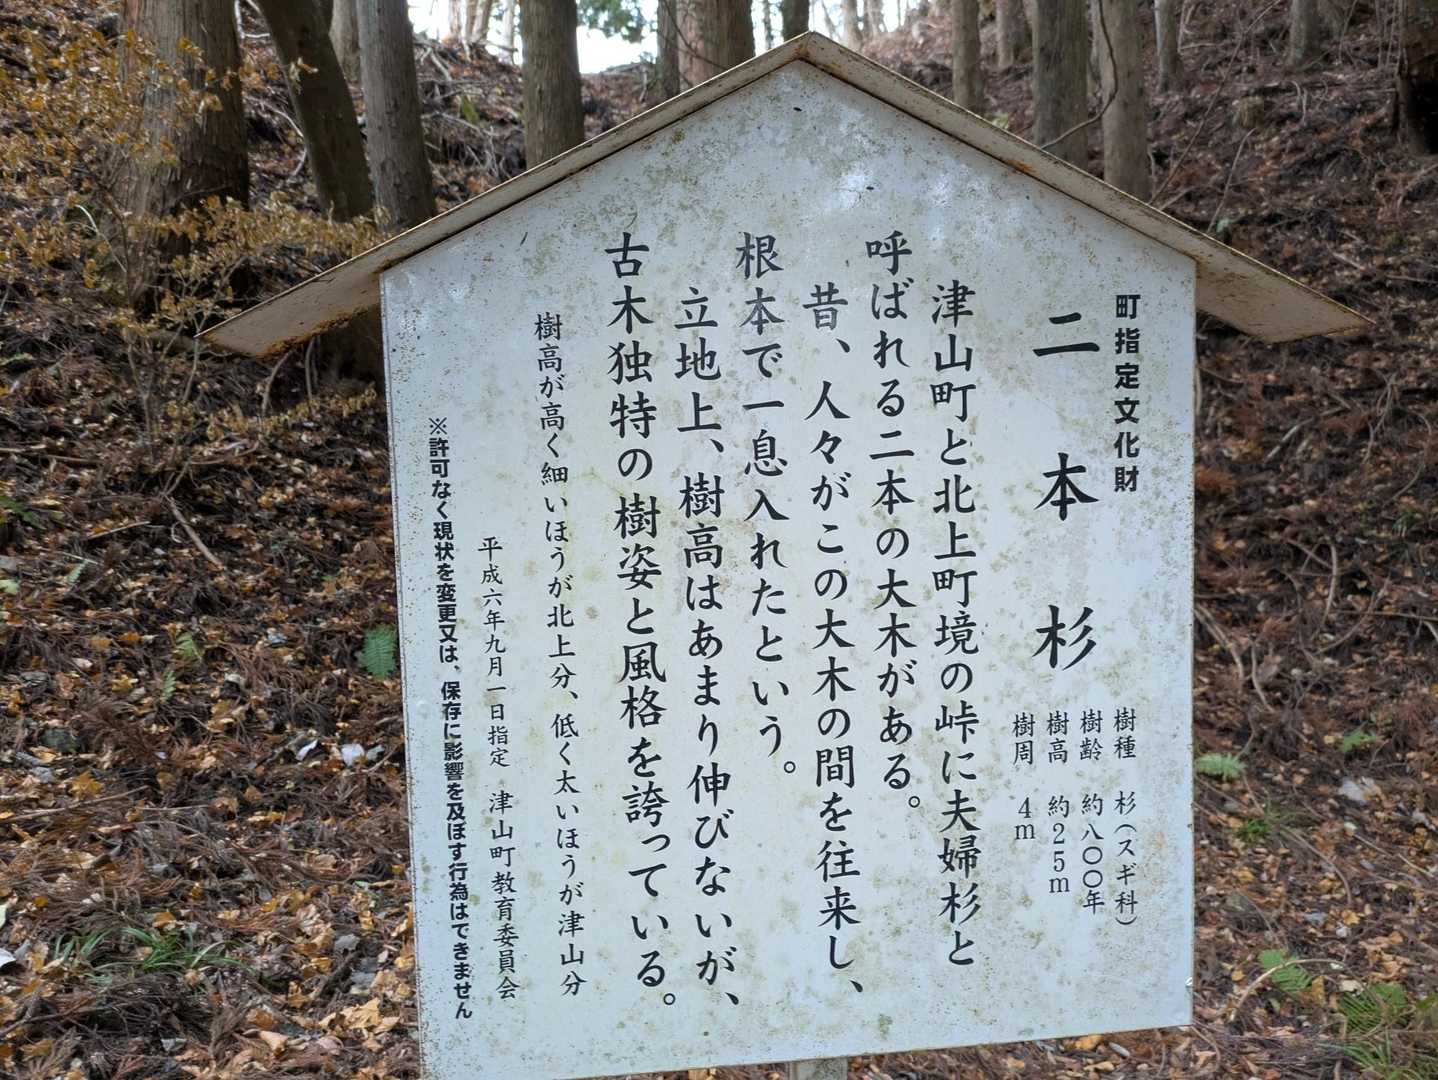 町指定文化財
二本杉
樹種　杉（スギ科）
樹齢　約八〇〇年
樹高　約25m
樹周　4m
津山町と北上町境の峠に夫婦杉と
呼ばれる二本の大木がある。
昔、人々がこの大木の間を往来し、
根本で一息入れたという。
立地上、樹高はあまり伸びないが、
古木独特の樹姿と風格を誇っている。
樹高が高く細いほうが北上分、低く太いほうが津山分
平成六年九月一日指定　津山町教育委員会
※許可なく現状を変更又は、保存に影響を及ぼす行為はできません